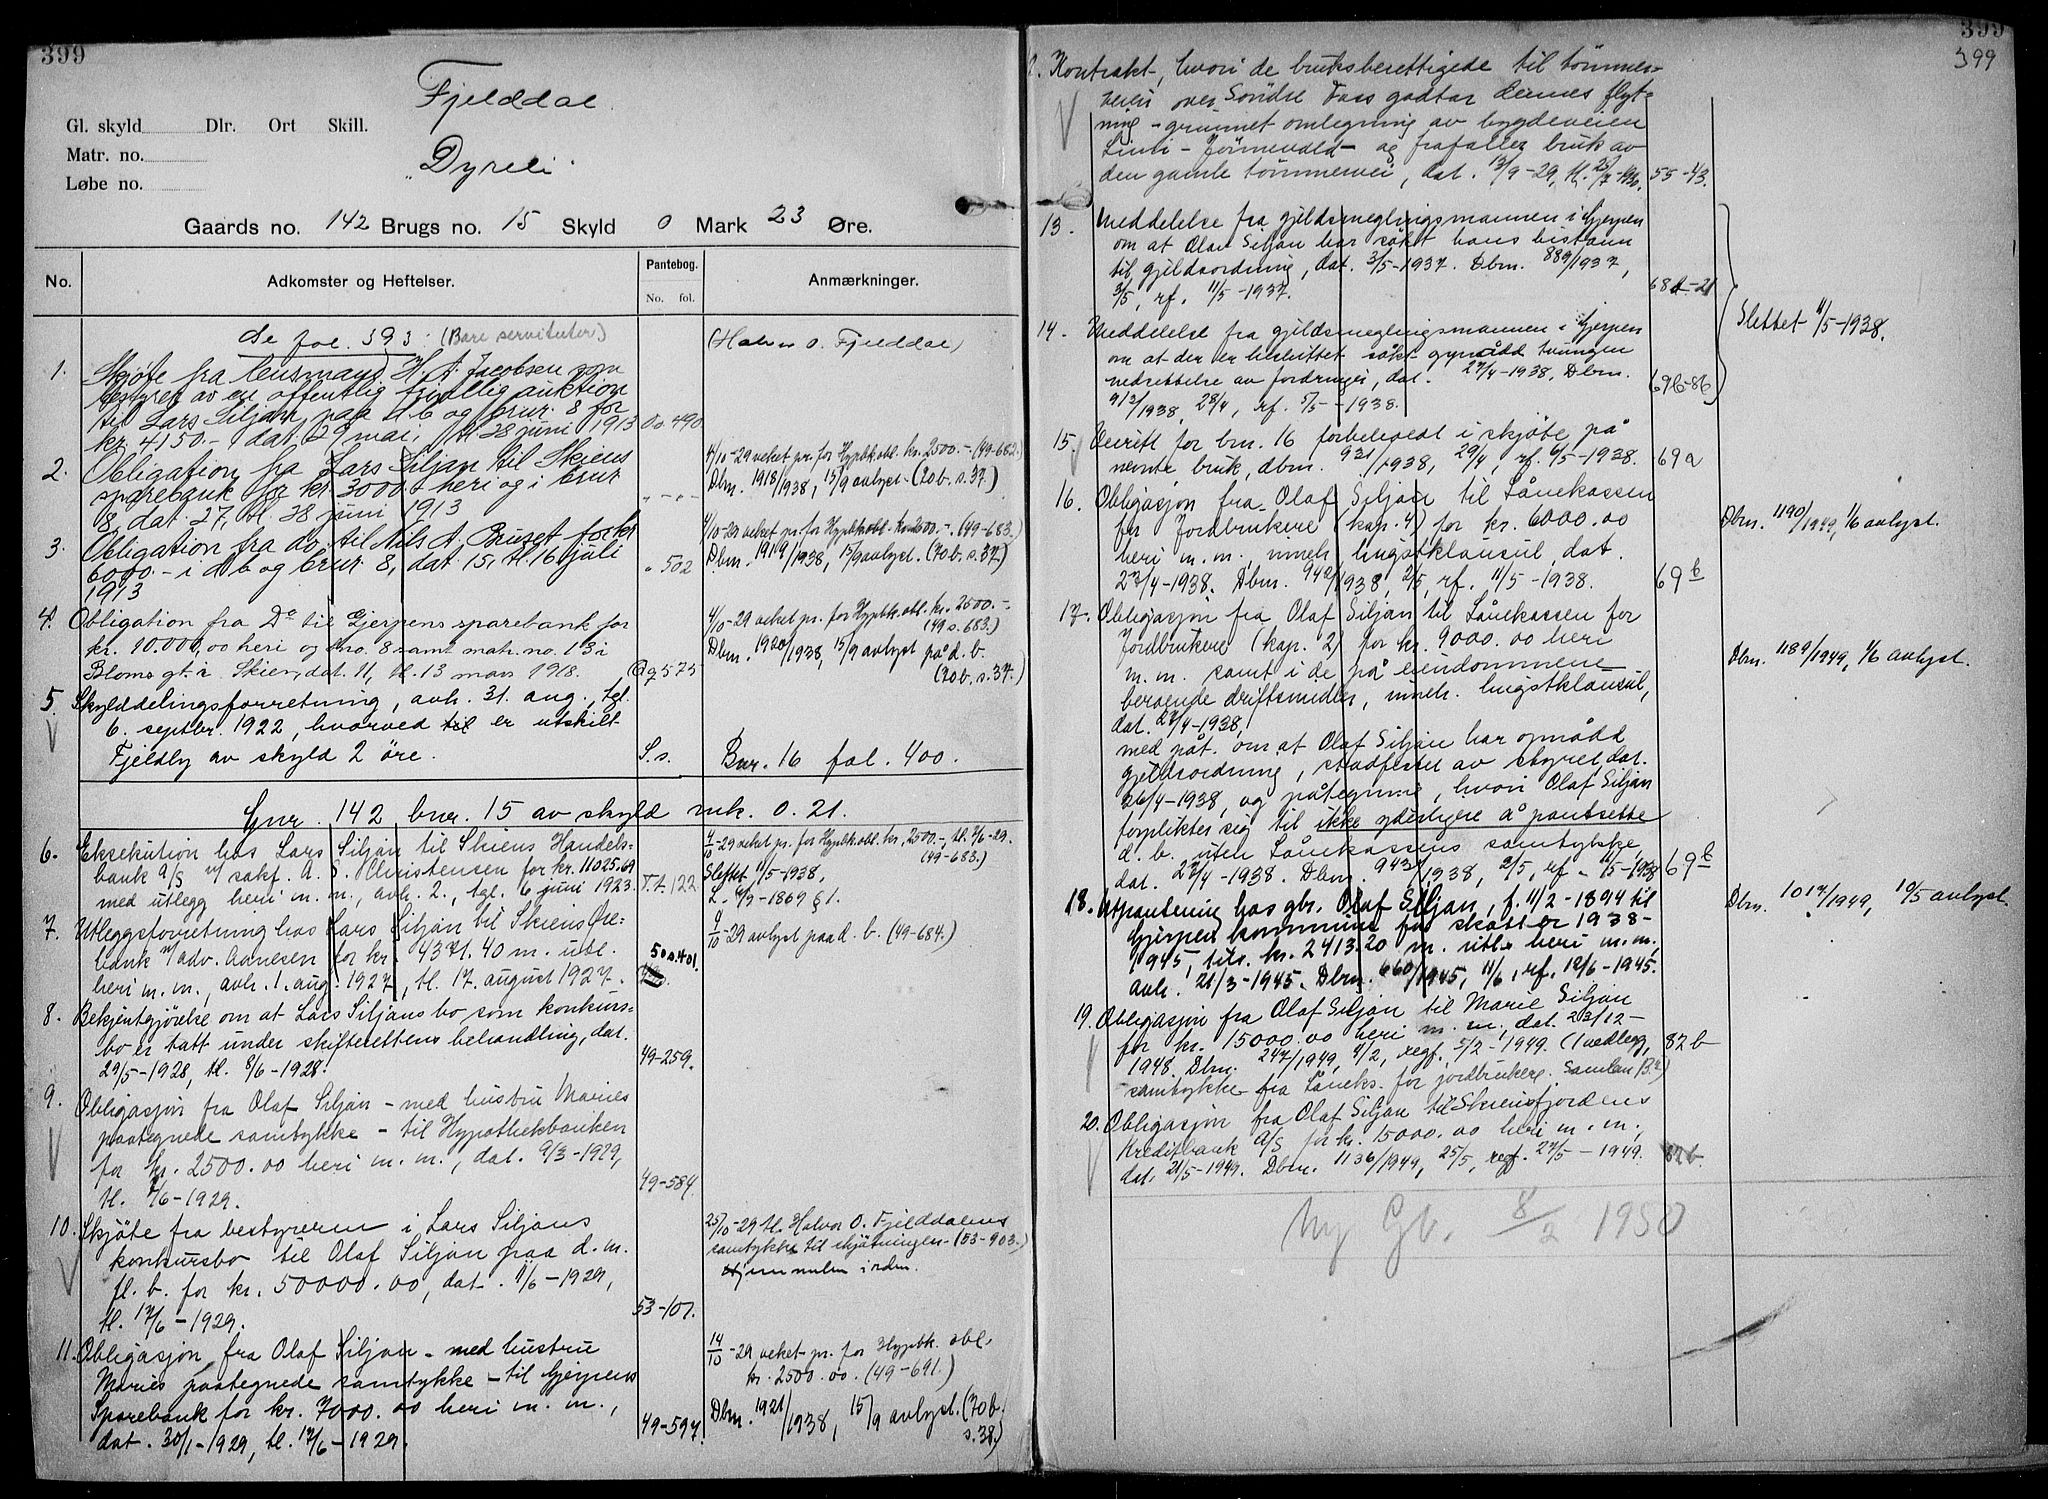 399
Fjelddal
Gl. skyld Dlr. Ort Skill.
Matr. no.
"Dyreli"
Løbe no.
Gaards no. 142 Brugs no. 15 Skyld 0 Mark 23 Øre.
No. Adkomster og Heftelser. Pantebog. No. fol. Anmærkninger.
Se fol. 393: (Bare servituter) (Halvor O. Fjelddal)
1. Skjøte fra lensmand H. A. Jacobsen som
bestyrer av en offentlig frivillig auktion
til Lars Siljan paa d. b og brnr. 8 for
kr. 4150.- dat. 29 mai, tl. 28 juni 1913 Oo 490
2. Obligation fra Lars Siljan til Skiens
sparebank for kr. 3000.- heri og i brnr
8, dat. 27, tl. 28 juni 1913 " - " -
4/10-29 veket pr. for Hypbk.obl. kr. 2500.- (49-682.)
Dbm. 1918/1938, 15/9 avlyst (70 b. s. 37.)
3. Obligation fra do. til Nils A. Buset for kr
6000.- i d b og brnr. 8, dat. 15, tl. 16 juli
1913 " 502
4/10-29 veket pr. for Hypbk.obl. kr. 2500.-. (49-683.)
Dbm. 1919/1938, 15/9 avlyst. (70 b. s. 37.)
4. Obligation fra Do til Gjerpens sparebank for
kr. 10.000,00 heri og bno. 8 samt matr. no. 13 i
Bloms gt. i Skien, dat. 11, tl. 13 mars 1918. Qq 575
4/10-29 veket pr. for Hypbk. obl. kr. 2500.-.
(49 s. 683.)
Dbm. 1920/1938, 15/9 avlyst på d. b.
(70 b. s. 37.)
5. Skylddelingsforretning, avh. 31. aug., tgl.
6. septbr. 1922, hvorved til er utskilt
Fjeldly av skyld 2 øre. S. s. Bnr. 16 fol. 400.
Gnr. 142 bnr. 15 av skyld mk. 0.21.
6. Eksekution hos Lars Siljan til Skiens Handels-
bank A/S v/ sakf. A. S. Christensen for kr. 11025.69
med utlegg heri m. m., avh. 2., tgl. 6 juni 1923. T. t. 122
4/10-29 veket pr. for Hypbk.obl. kr. 2500.-, tl. 7/6-29.
(49-683.)
Slettet 11/5-1938,
L. 4/9-1869 § 1.
7. Utleggsforretning hos Lars Siljan til Skiens Øre-
bank v/ adv. Aanesen for kr. 4371.40 m. utl.
heri m. m., avh. 1. aug. 1927, tl. 17. august 1927. 50 s. 401.
4/10-29 avlyst paa d. b. (49-684.)
8. Bekjentgjørelse om at Lars Siljans bo som konkurs-
bo er tatt under skifterettens behandling, dat.
29/5-1928, tl. 8/6-1928. 49-259.
9. Obligasjon fra Olaf Siljan - med hustru Maries
paategnede samtykke - til Hypothekbanken
for kr. 2500.00 heri m. m., dat. 9/3-1929,
tl. 7/6-1929. 49-584.
10. Skjøte fra bestyreren i Lars Siljans
konkursbo til Olaf Siljan paa d. m.
fl. b. for kr. 50000.00, dat. 11/6-1929,
tl. 17/6-1929. 53-107.
25/10-29 tl. Halvor O. Fjelddalens
samtykke til skjøtningen. (53-903.)
Hjemmelen i orden.
11. Obligasjon fra Olaf Siljan - med hustru
Maries paategnede samtykke - til Gjerpens
Sparebank for kr. 7000.00 heri m. m.,
dat. 30/1-1929, tl. 17/6-1929. 49-597.
14/10-29 veket pr. for Hypbk. obl.
kr. 2500.00. (49-691.)
Dbm. 1921/1938, 15/9 avlyst. (70 b.
s. 38.)
399
399
2. Kontrakt, hvori de bruksberettigede til tømmer-
veien over Søndre Foss godtar dennes flyt-
ning - grunnet omlegning av bygdeveien
Limi - Jønnevald - og frafaller bruk av
den gamle tømmervei, dat. 13/9-29, tl. 25/7-1930. 55-43.
13. Meddelelse fra gjeldsmeglingsmannen i Gjerpen
om at Olav Siljan har søkt hans bistann
til gjeldsordning, dat. 3/5-1937. Dbm. 889/1937,
3/5, rf. 11/5-1937. 68 d.-21
14. Meddelelse fra gjeldsmeglingsmannen i Gjerpen
om at der er besluttet søkt oppnådd tvungen
nedsettelse av fordringer, dat. 27/4-1938, Dbm.
913/1938, 28/4, rf. 5/5-1938. 69 b-86
Slettet 11/5-1938.
15. Veirett for bnr. 16 forbeholdt i skjøte på
nevnte bruk, dbm. 921/1938, 29/4, rf. 6/5-1938. 69 a
16. Obligasjon fra Olaf Siljan til Lånekassen
for Jordbrukere (kap. 4) for kr. 6000.00
heri m. m. inneh. lugstklausul, dat.
27/4-1938. Dbm. 942/1938, 2/5, rf. 11/5-1938. 69 b
Dbm. 1190/1949, 1/6 avlyst.
17. Obligasjon fra Olaf Siljan til Lånekassen for
Jordbrukere (kap. 2) for kr. 9000.00 heri
m. m. samt i de på eiendommene
beroende driftsmidler, inneh. lugstklausul,
dat. 27/4-1938,
med påt. om at Olaf Siljan har opnådd
gjeldsordning, stadfestet av styret, dat.
26/4-1938, og påtegning, hvori Olaf Siljan
forplikter sig til ikke yderligere å pantsette
d. b. uten Lånekassens samtykke,
dat. 27/4-1938. Dbm. 943/1938, 2/5, rf. 11/5-1938 69 b
Dbm. 1189/1949, 1/6 avlyst.
18. Utpantning hos gbr. Olaf Siljan, f. 11/2-1894 til
Gjerpen kommune for skatter 1938-
1945, tils. kr. 2413.20 m. utl. heri m. m.,
avh. 21/3-1945. Dbm. 660/1945, 11/6, rf. 12/6-1945.
Dbm. 1017/1949, 10/5 avlyst.
19. Obligasjon fra Olaf Siljan til Marie Siljan
for kr. 15000.00 heri m. m., dat. 23/12-
1948. Dbm. 247/1949, 4/2, regf. 5/2-1949. (1 vedlegg, 82 b
samtykke fra Låneks. for jordbrukere. Samlen B2)
20. Obligasjon fra Olaf Siljan til Skiensfjordens
Kreditbank A/S for kr. 15000.00 heri m. m.,
dat. 21/5-1949. Dbm. 1136/1949, 25/5, regf. 27/5-1949. 82 b.
Ny Gb. 8/2 1950